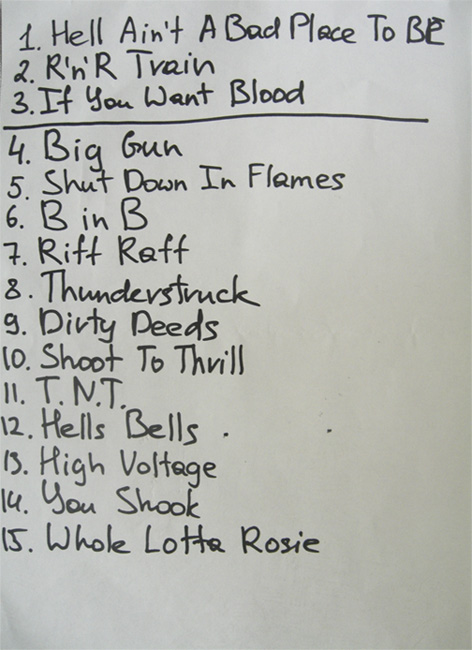 1. Hell Ain't A Bad Place To BE
2. R'n'R Train
3. If You Want Blood
4. Big Gun
5. Shut Down In Flames
6. B in B
7. Riff Raff
8. Thunderstruck
9. Dirty Deeds
10. Shoot To Thrill
11. T.N.T.
12. Hells Bells
13. High Voltage
14. You Shook
15. Whole Lotta Rosie